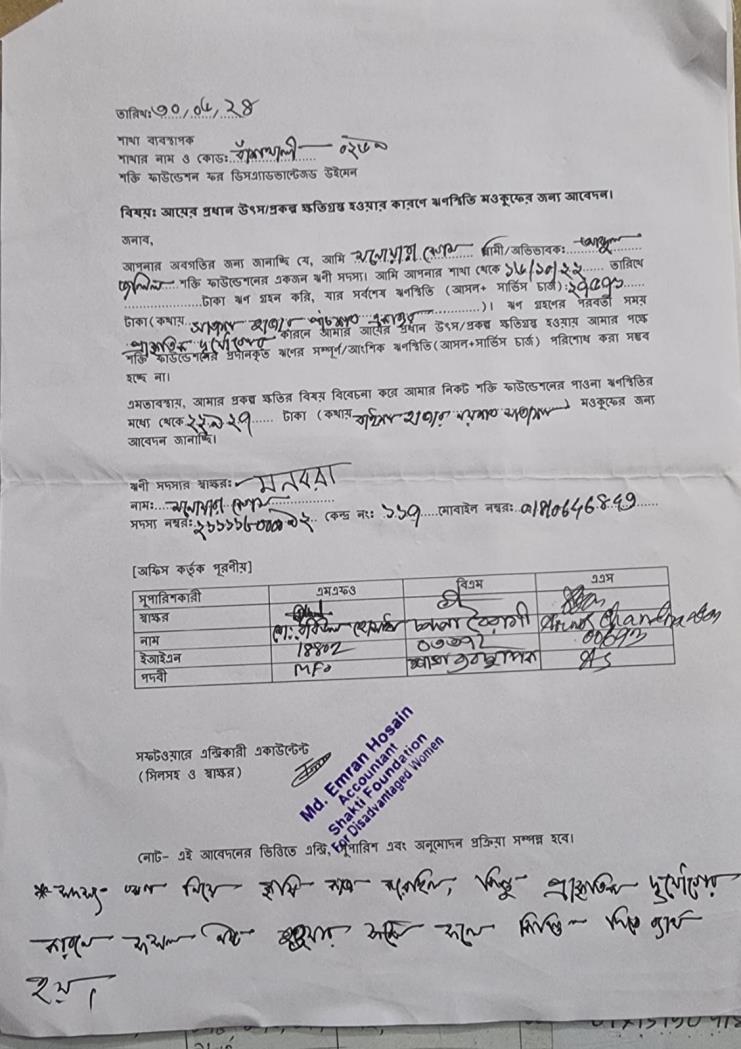 তারিখঃ ৩০/০৬/২৪
শাখা ব্যবস্থাপক
শাখার নাম ও কোডঃ বাঁশখালী
শক্তি ফাউন্ডেশন ফর ডিসএ্যাডভান্টেজড উইমেন
বিষয়ঃ আয়ের প্রধান উৎস/প্রকল্প ক্ষতিগ্রস্ত হওয়ার কারণে ঋণস্থিতি মওকুফের জন্য আবেদন।
জনাব,
আপনার অবগতির জন্য জানাচ্ছি যে, আমি মনোয়ারা বেগম স্বামী/অভিভাবকঃ আব্দুল
জলিল শক্তি ফাউন্ডেশনের একজন ঋনী সদস্য। আমি আপনার শাখা থেকে ১৬/১০/২২ তারিখে
টাকা ঋণ গ্রহন করি, যার সর্বশেষ ঋণস্থিতি (আসল+ সার্ভিস চার্জ)ঃ
টাকা(কথায় হাজার পাঁচশত )। ঋণ গ্রহনের পরবর্তী সময়
প্রাকৃতিক দুর্যোগের কারনে আমার আয়ের প্রধান উৎস/প্রকল্প ক্ষতিগ্রস্ত হওয়ায় আমার পক্ষে
শক্তি ফাউন্ডেশনের প্রদানকৃত ঋনের সম্পূর্ণ/আংশিক ঋণস্থিতি(আসল+সার্ভিস চার্জ) পরিশোধ করা সম্ভব
হচ্ছে না।
এমতাবস্থায়, আমার প্রকল্প ক্ষতির বিষয় বিবেচনা করে আমার নিকট শক্তি ফাউন্ডেশনের পাওনা ঋণস্থিতির
মধ্যে থেকে ২২৯২৭ টাকা (কথায় বাইশ হাজার নয়শত সাতাশ) মওকুফের জন্য
আবেদন জানাচ্ছি।
ঋনী সদস্যর স্বাক্ষরঃ মনবরা
নামঃ মনোয়ারা বেগম
সদস্য নম্বরঃ কেন্দ্র নংঃ ১১৭ মোবাইল নম্বরঃ
[অফিস কর্তৃক পূরনীয়]
সুপারিশকারী এমএফও বিএম এএস
স্বাক্ষর
নাম
ইআইএন 18802 00693
পদবী MFO শাখা ব্যবস্থাপক AS
সফটওয়ারে এন্ট্রিকারী একাউন্টেন্ট
(সিলসহ ও স্বাক্ষর)
Md. Emran Hosain
Accountant
Shakti Foundation
For Disadvantaged Women
নোট- এই আবেদনের ভিত্তিতে এন্ট্রি, সুপারিশ এবং অনুমোদন প্রক্রিয়া সম্পন্ন হবে।
* সদস্য ঋণ নিয়ে কৃষি কাজ করেছিল, কিন্তু প্রাকৃতিক দুর্যোগের
কারনে ফসল নষ্ট হওয়ার ফলে কিস্তি দিতে ব্যর্থ
হয়।